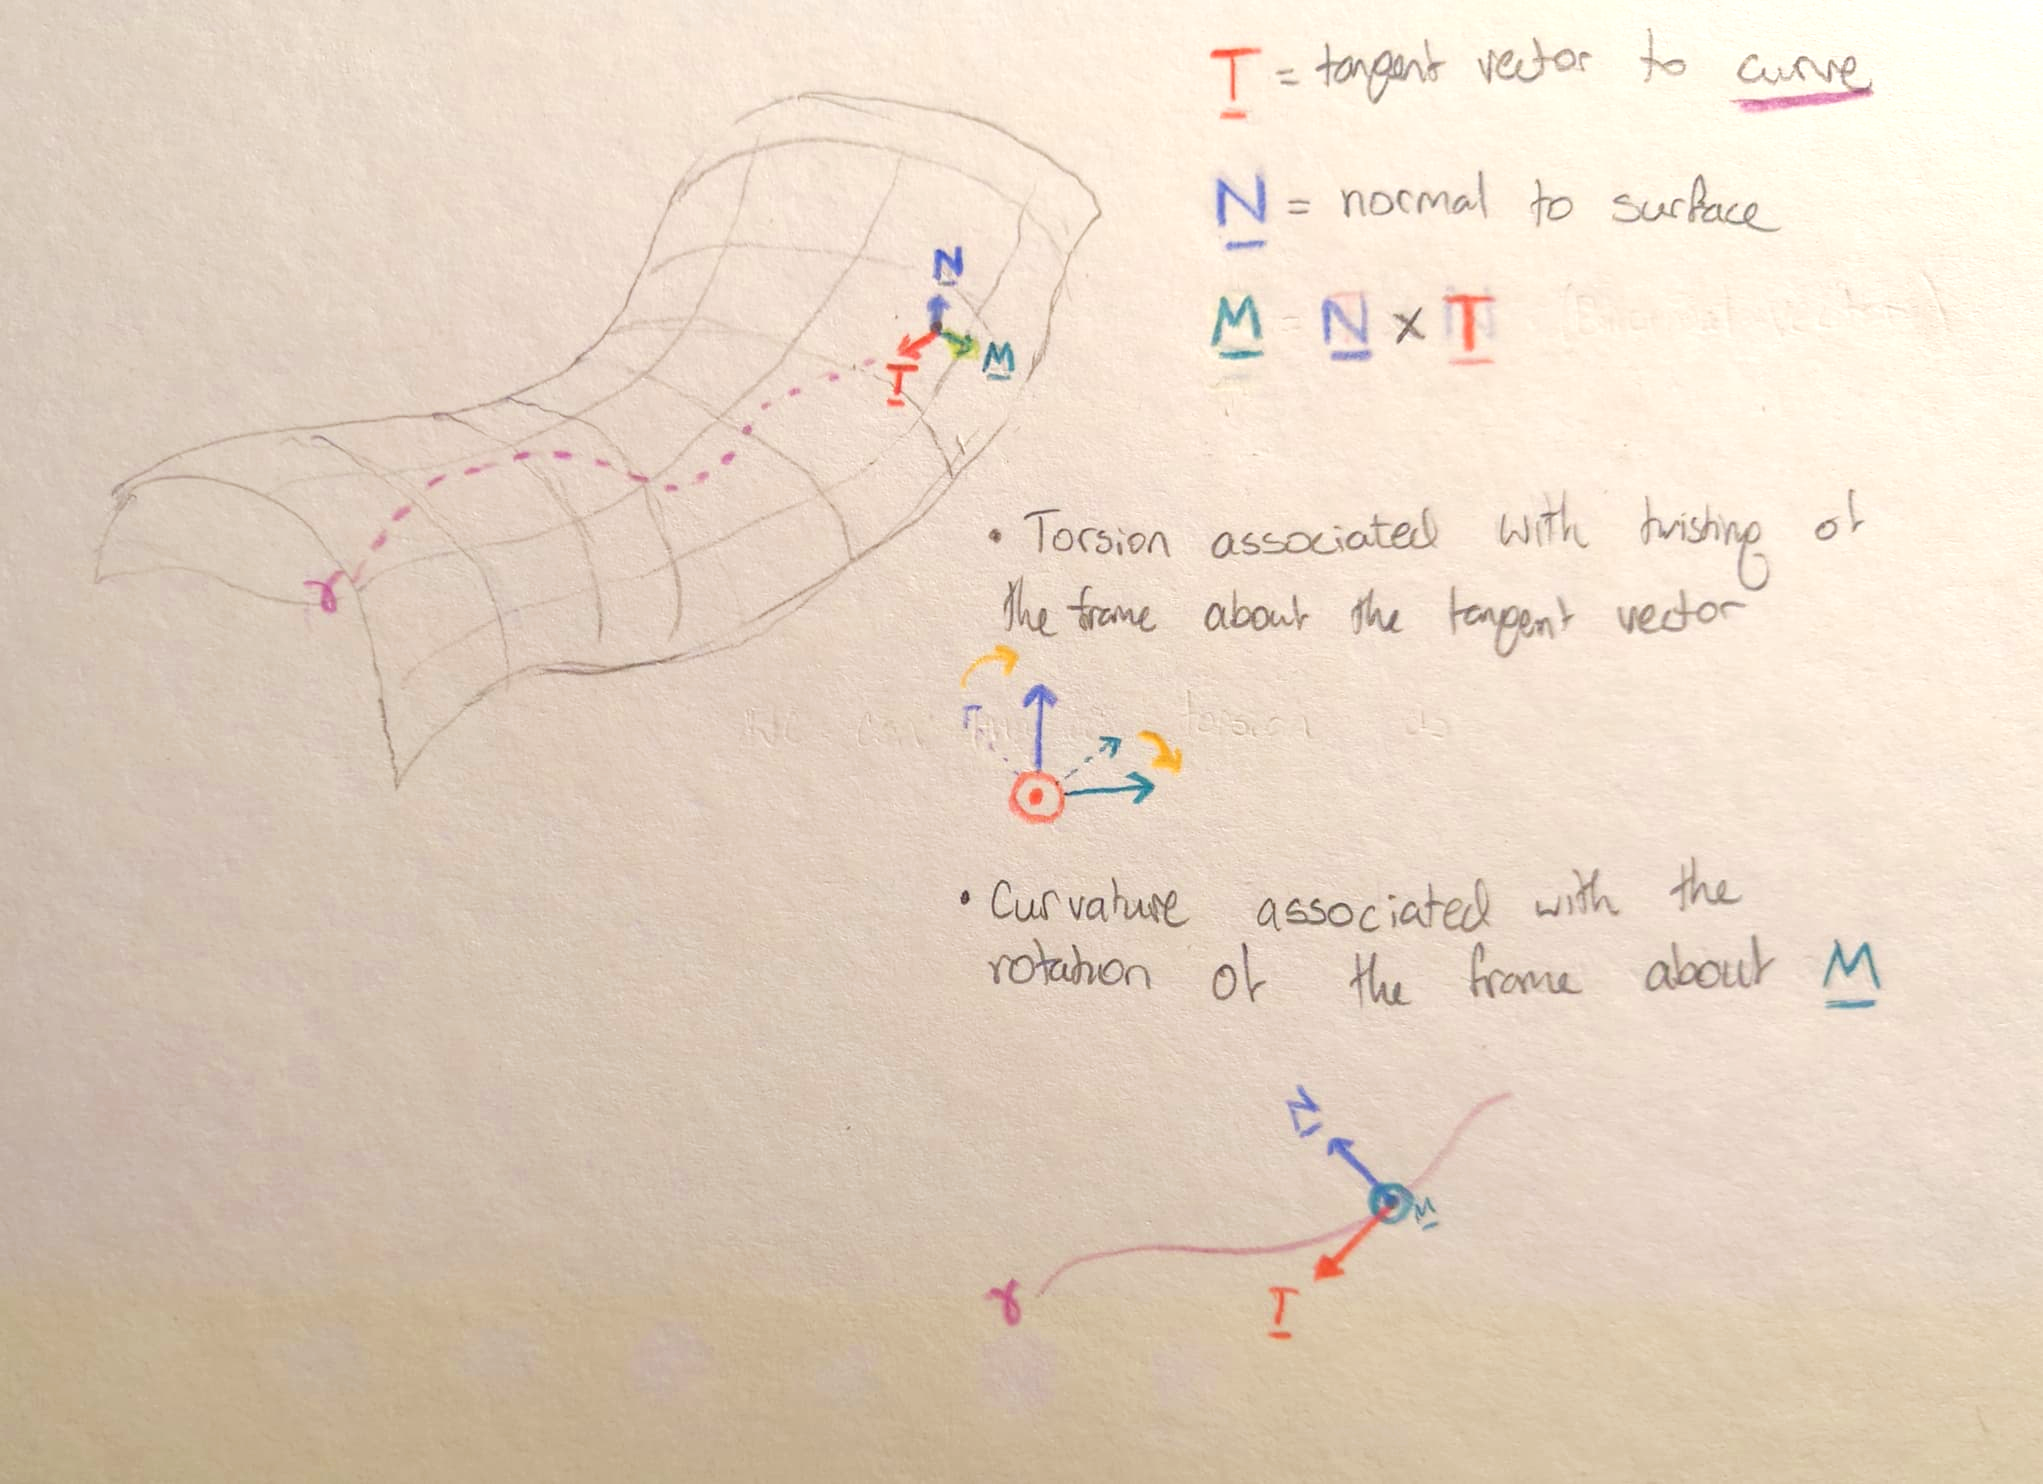 T = tangent vector to curve
N = normal to surface
M = N x T
N
T
M
γ
• Torsion associated with twisting of
the frame about the tangent vector
• Curvature associated with the
rotation of the frame about M
N
M
T
γ